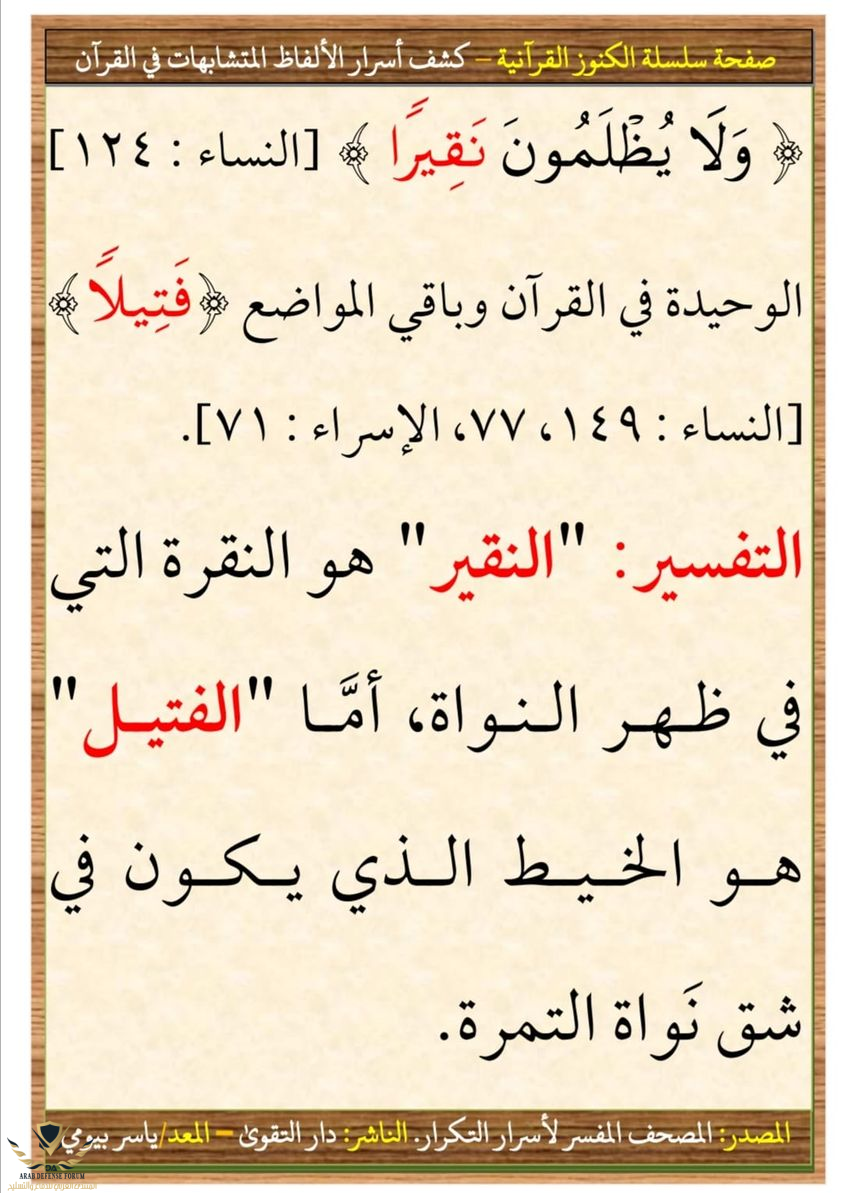 صفحة سلسلة الكنوز القرآنية – كشف أسرار الألفاظ المتشابهات في القرآن
﴿ وَلَا يُظْلَمُونَ نَقِيرًا ﴾ [النساء : ١٢٤]
الوحيدة في القرآن وباقي المواضع ﴿فَتِيلاً﴾
[النساء : ١٤٩، ٧٧، الإسراء : ٧١].
التفسير: "النقير" هو النقرة التي
في ظهر النواة، أمَّا "الفتيل"
هو الخيط الذي يكون في
شق نَواة التمرة.
المصدر: المصحف المفسر لأسرار التكرار. الناشر: دار التقوىٰ – المعد/ياسر بيومي
ARAB DEFENSE FORUM